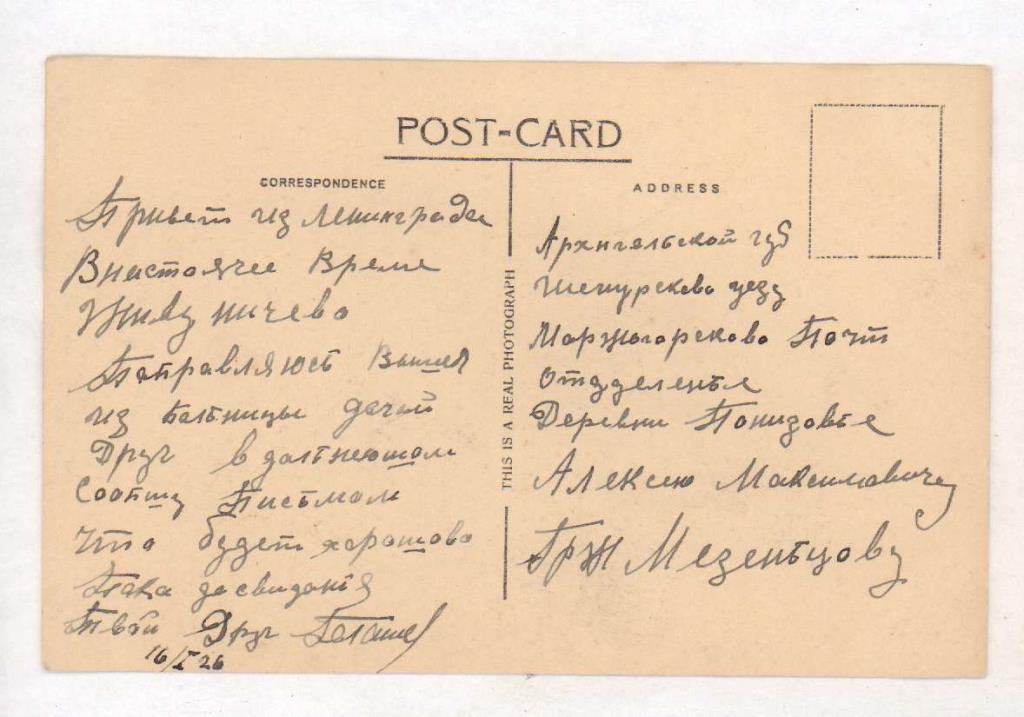 POST-CARD
CORRESPONDENCE
Привет из Ленинграда
Внастоячее Время
Живу ничево
Поправляюсь Вышел
из Больницы
Друг в дальнеюшом
Сообщу Письмом
Что будет хорошово
Пока до свиданья
Твой Друг
16/I 26
THIS IS A REAL PHOTOGRAPH
ADDRESS
Архнгельской губ
Шенкурсково уезд
Моржогорсково Почт
Отдделенье
Деревни Понизовье
Алексею Максимовичу
Грж Мезеньцову